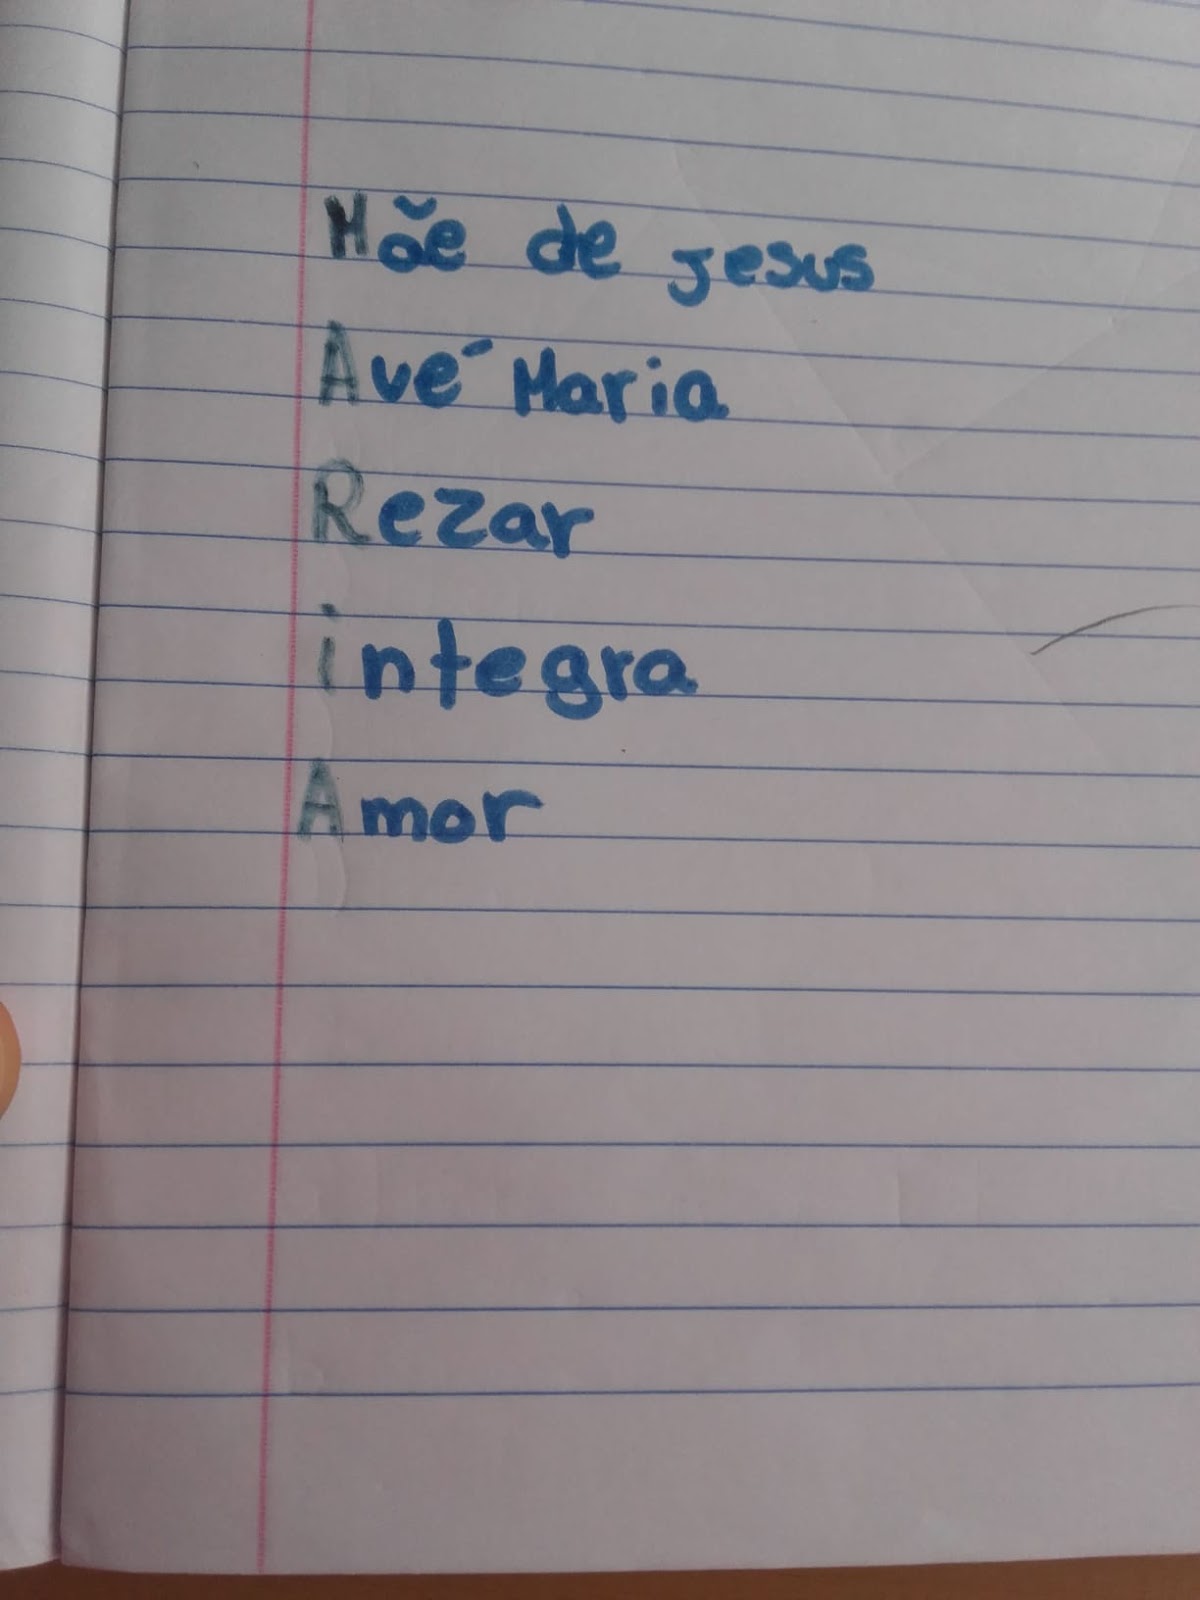 Mãe de jesus
Avé Maria
Rezar
integra
Amor